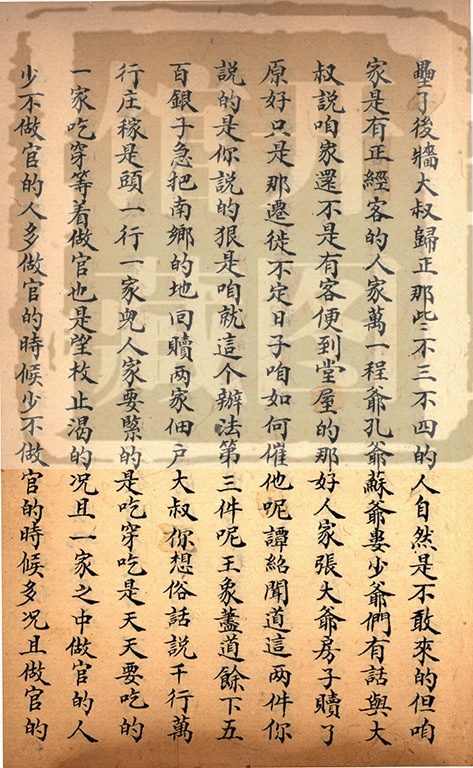 壘了後牆大叔歸正那些不三不四的人自然是不敢來的但咱
家是有正經客的人家萬一程爺孔爺蘇爺婁少爺們有話與大
叔說咱家還不是有客便到堂屋的那好人家張大爺房子贖了
原好只是那遷徙不定日子咱如何催他呢譚紹聞道這兩件你
說的是你說的狠是咱就這个辦法第三件呢王象藎道餘下五
百銀子急把南鄉的地回贖兩家佃户大叔你想俗話說千行萬
行庄稼是頭一行一家兒人家要緊的是吃穿吃是天天要吃的
一家吃穿等着做官也是望枚止渴的况且一家之中做官的人
少不做官的人多做官的時候少不做官的時候多况且做官的